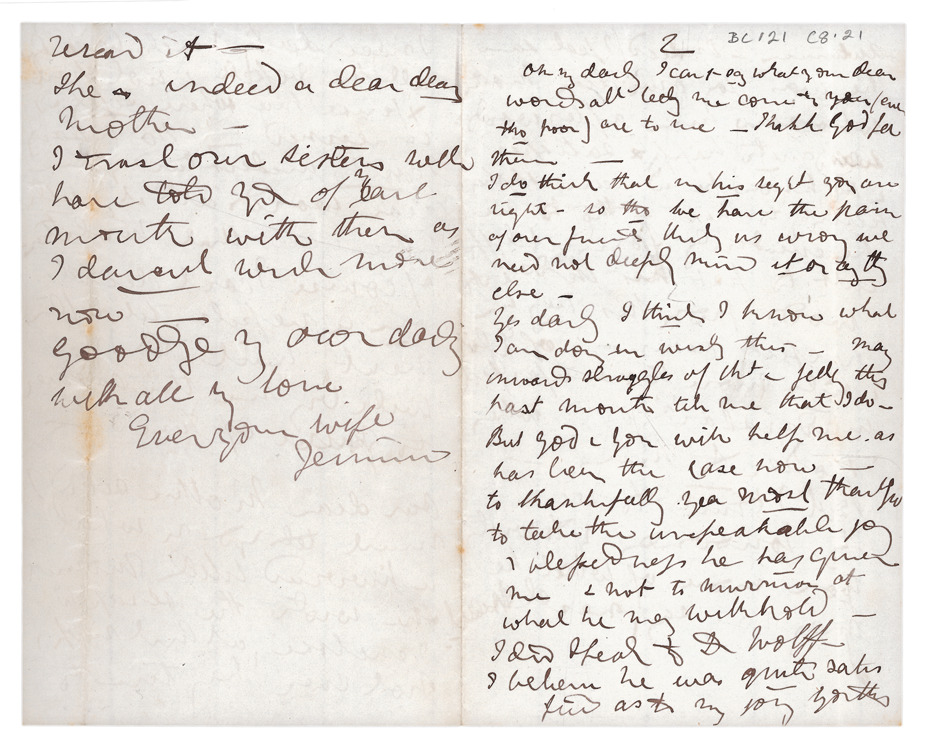 2 BC121 C8.21
Oh my darlg I can't say what your dear
words all tellg me come to you (even
tho poor) are to me – Thank God for
them –
I do think that in his sight you are
right – so tho we have the pain
of our friends thinkg us wrong we
need not deeply mind it or anythg
else –
Yes darlg I think I know what
I am doing in wishg this – many
inwards struggles of tht & feelg this
past month tell me that I do –
But God & you will help me. as
has been the case now –
to thankfully yea most thankful
to take the unspeakable joy
& blessedness he has given
me & not to murmur at
what he may withhold –
I did speak to Dr Wolff
I believe he was quite satis
fied as to my going
read it –
She is indeed a dear dear
Mother –
I trust our sisters will
have told you of
month with them as
I daresnt write more
now –
Goodbye my own darlg
with all my love
Ever your wife
Jemima